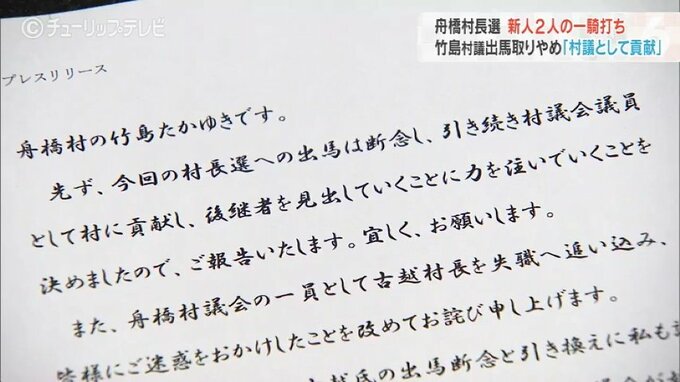 ©チューリップテレビ
舟橋村長選 新人2人の一騎打ち
竹島村議出馬取りやめ「村議として貢献」
プレスリリース
舟橋村の竹島たかゆきです。
先ず、今回の村長選への出馬は断念し、引き続き村議会議員
として村に貢献し、後継者を見出していくことに力を注いでいくことを
決めましたので、ご報告いたします。宜しく、お願いします。
また、舟橋村議会の一員として古越村長を失職へ追い込み、
皆様にご迷惑をおかけしたことを改めてお詫び申し上げます。
氏の出馬断念と引き換えに私も